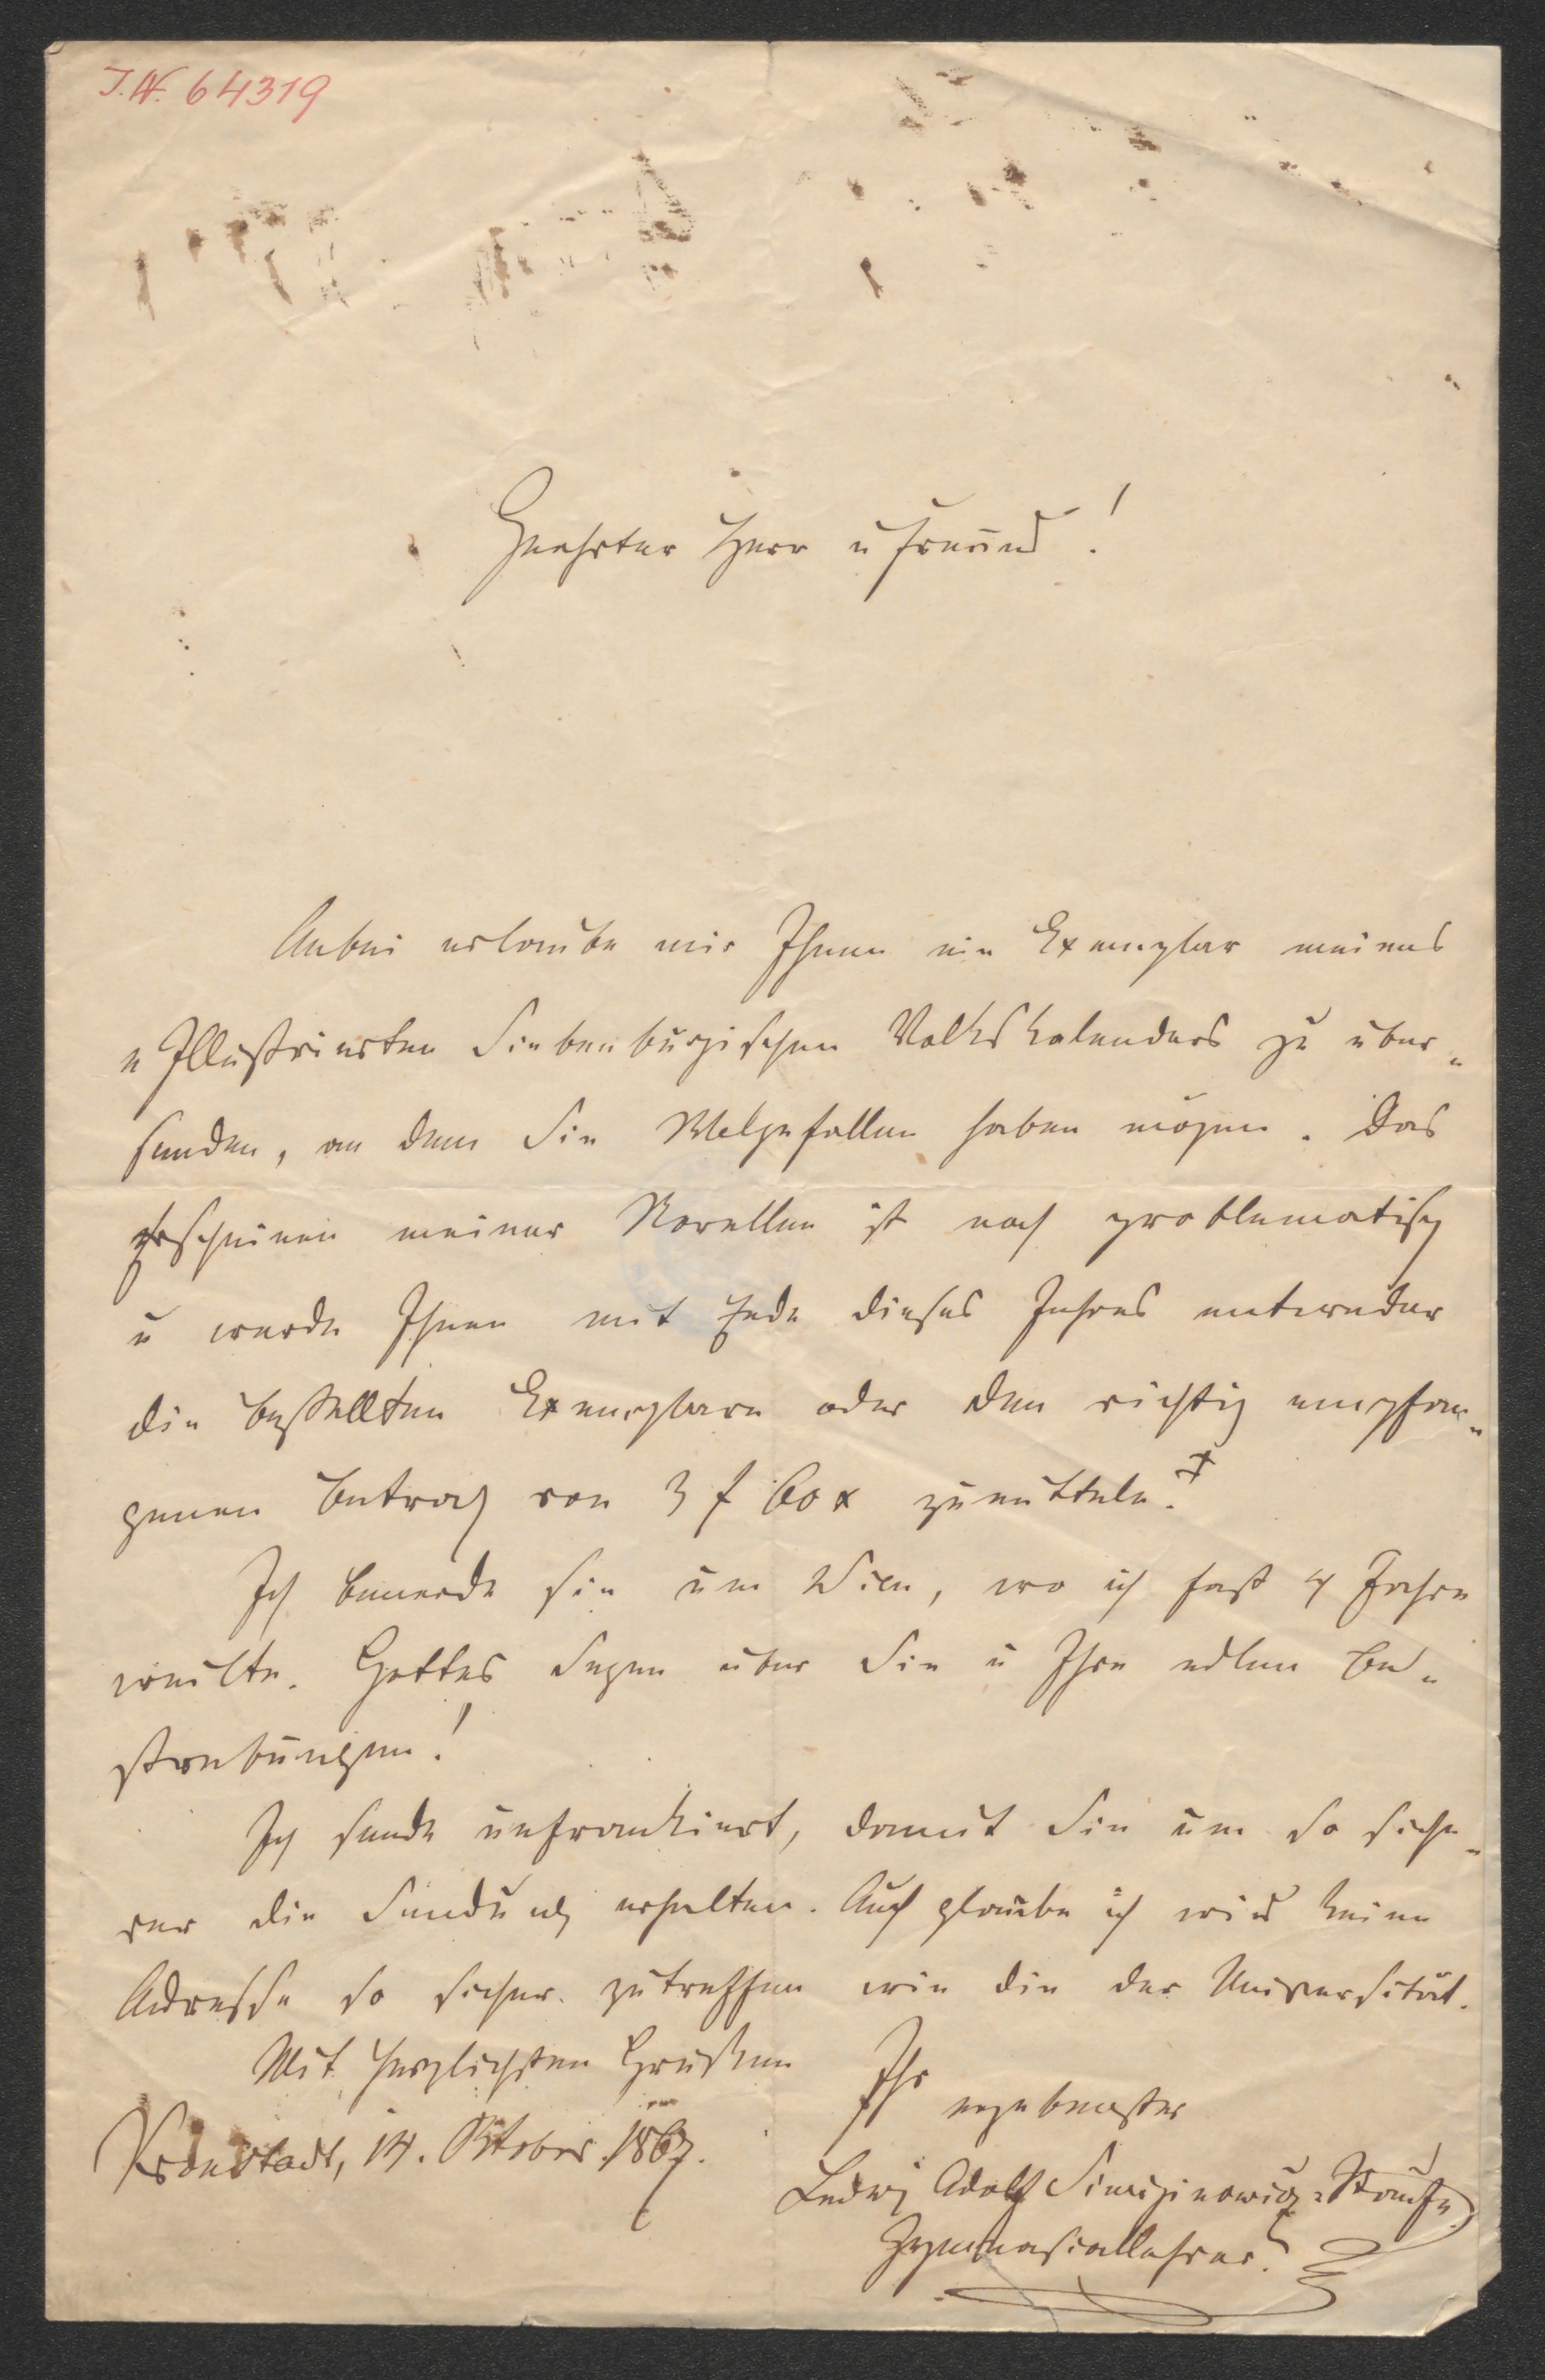 I.N. 64319
Geehrter Herr u Freund!
Anbei erlaube mir Ihnen ein Exemplar meines
"Illustrierten Siebenbürgischen Volkskalenders zu über-
senden, an dem Sie Wolgefallen haben mögen. Das
Erscheinen meiner Novellen ist noch problematisch
u werde Ihnen mit Ende dieses Jahres entweder
die bestellten Exemplare oder den richtig empfan-
genen Betrag von 3 f 60 x zumitteln.
Ich beneide Sie um Wien, wo ich fast 4 Jahre
weilte. Gottes Segen über Sie u Ihre edlen Be-
strebungen!
Ich sende unfrankiert, damit Sie um so siche-
rer die Sendung erhalten. Auch glaube ich wird keine
Adresse so sicher zutreffen wie die der Universität.
Mit herzlichsten Grüßen
Ihr
ergebenster
Kronstadt, 14. Oktober 1867.
Ludwig Adolf Simiginowicz-Staufe
Gymnasiallehrer.